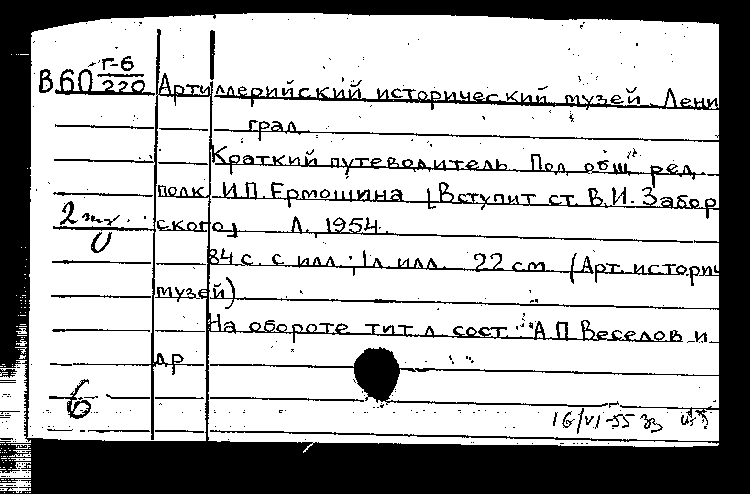 В.60 Г-6/220 Артиллерийский исторический музей. Лени
град
Краткий путеводитель. Под общ. ред.
полк. И.П. Ермошина [Вступит. ст. В.И. Забор
ского] Л., 1954.
84 с. с илл.; 1 л. илл. 22 см (Арт. историч
музей)
На обороте тит. л. сост.: А.П. Веселов и
др.
6
16/VI-55